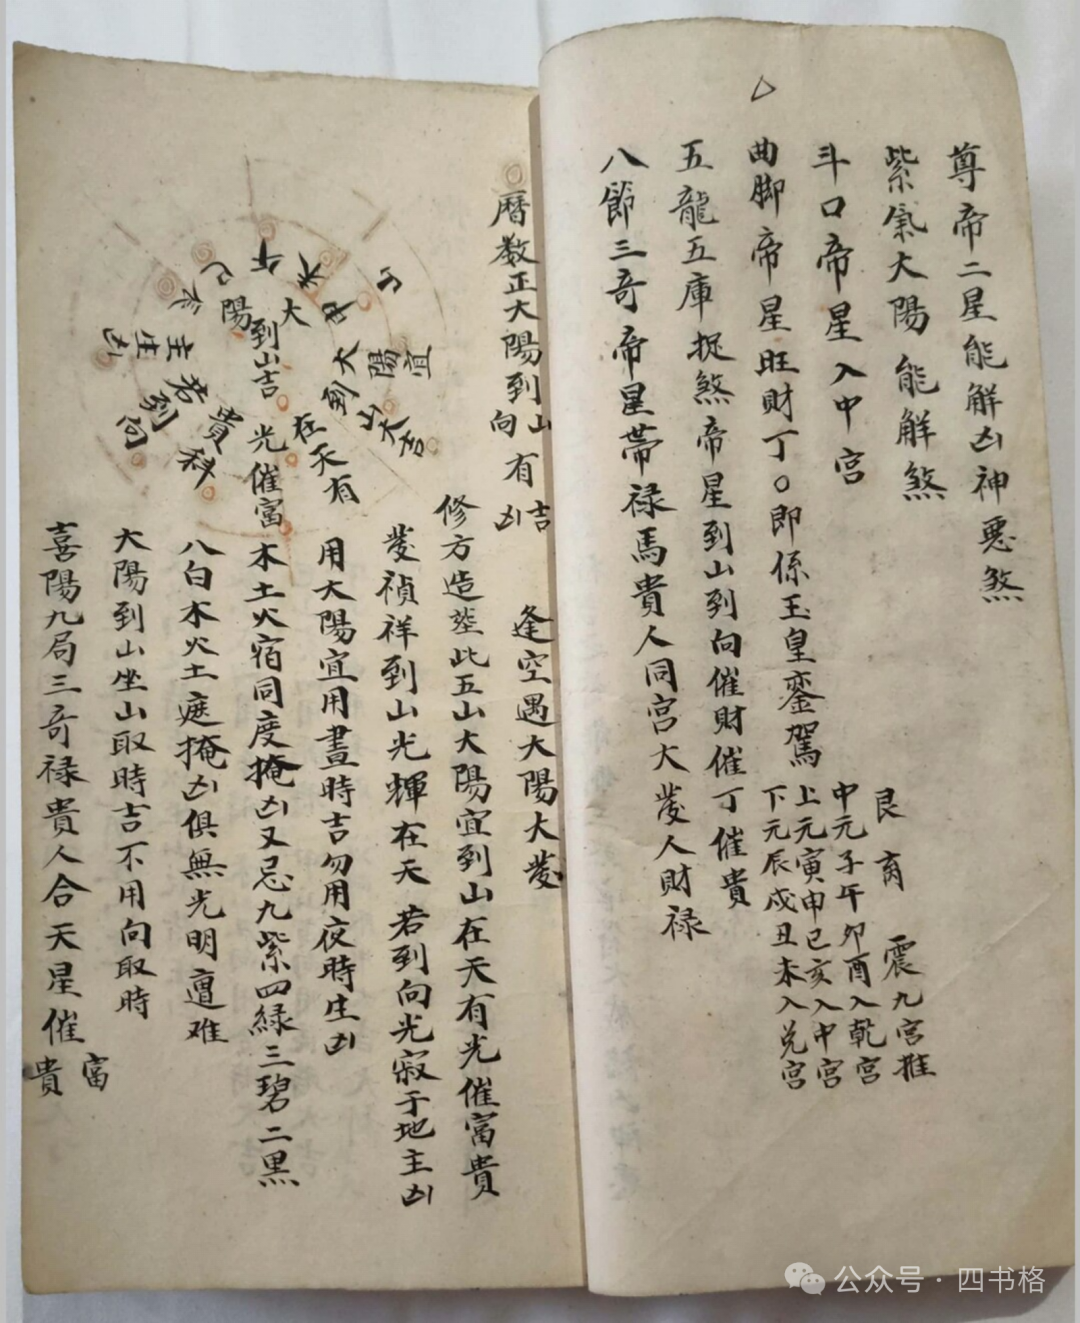 尊帝二星能解凶神惡煞
紫氣大陽能解煞
斗口帝星入中宮
曲脚帝星旺財丁○即係玉皇鑾駕
艮 震九宮推
中元子午卯酉入乾宮
上元寅申巳亥入中宮
下元辰戌丑未入兌宮
五龍五庫捉煞帝星到山到向催財催丁催貴
八節三奇帝星帶祿馬貴人同宮大發人財祿
曆数正大陽到山向有吉凶
逢空遇大陽大發
修方造塟此五山大陽宜到山在天有光催富貴
發禎祥到山光輝在天 若到向光寂于地主凶
用大陽宜用晝時吉勿用夜時生凶
木土火宿同度掩凶又忌九紫四緑三碧二黑
八白木火土遮掩凶俱無光明遭难
大陽到山坐山取時吉不用向取時
喜陽九局三奇祿貴人合天星催富貴
宜
大陽到山大吉
在天有
光催富
貴科
大陽到山吉
若到向
主生凶
公众号·四书格